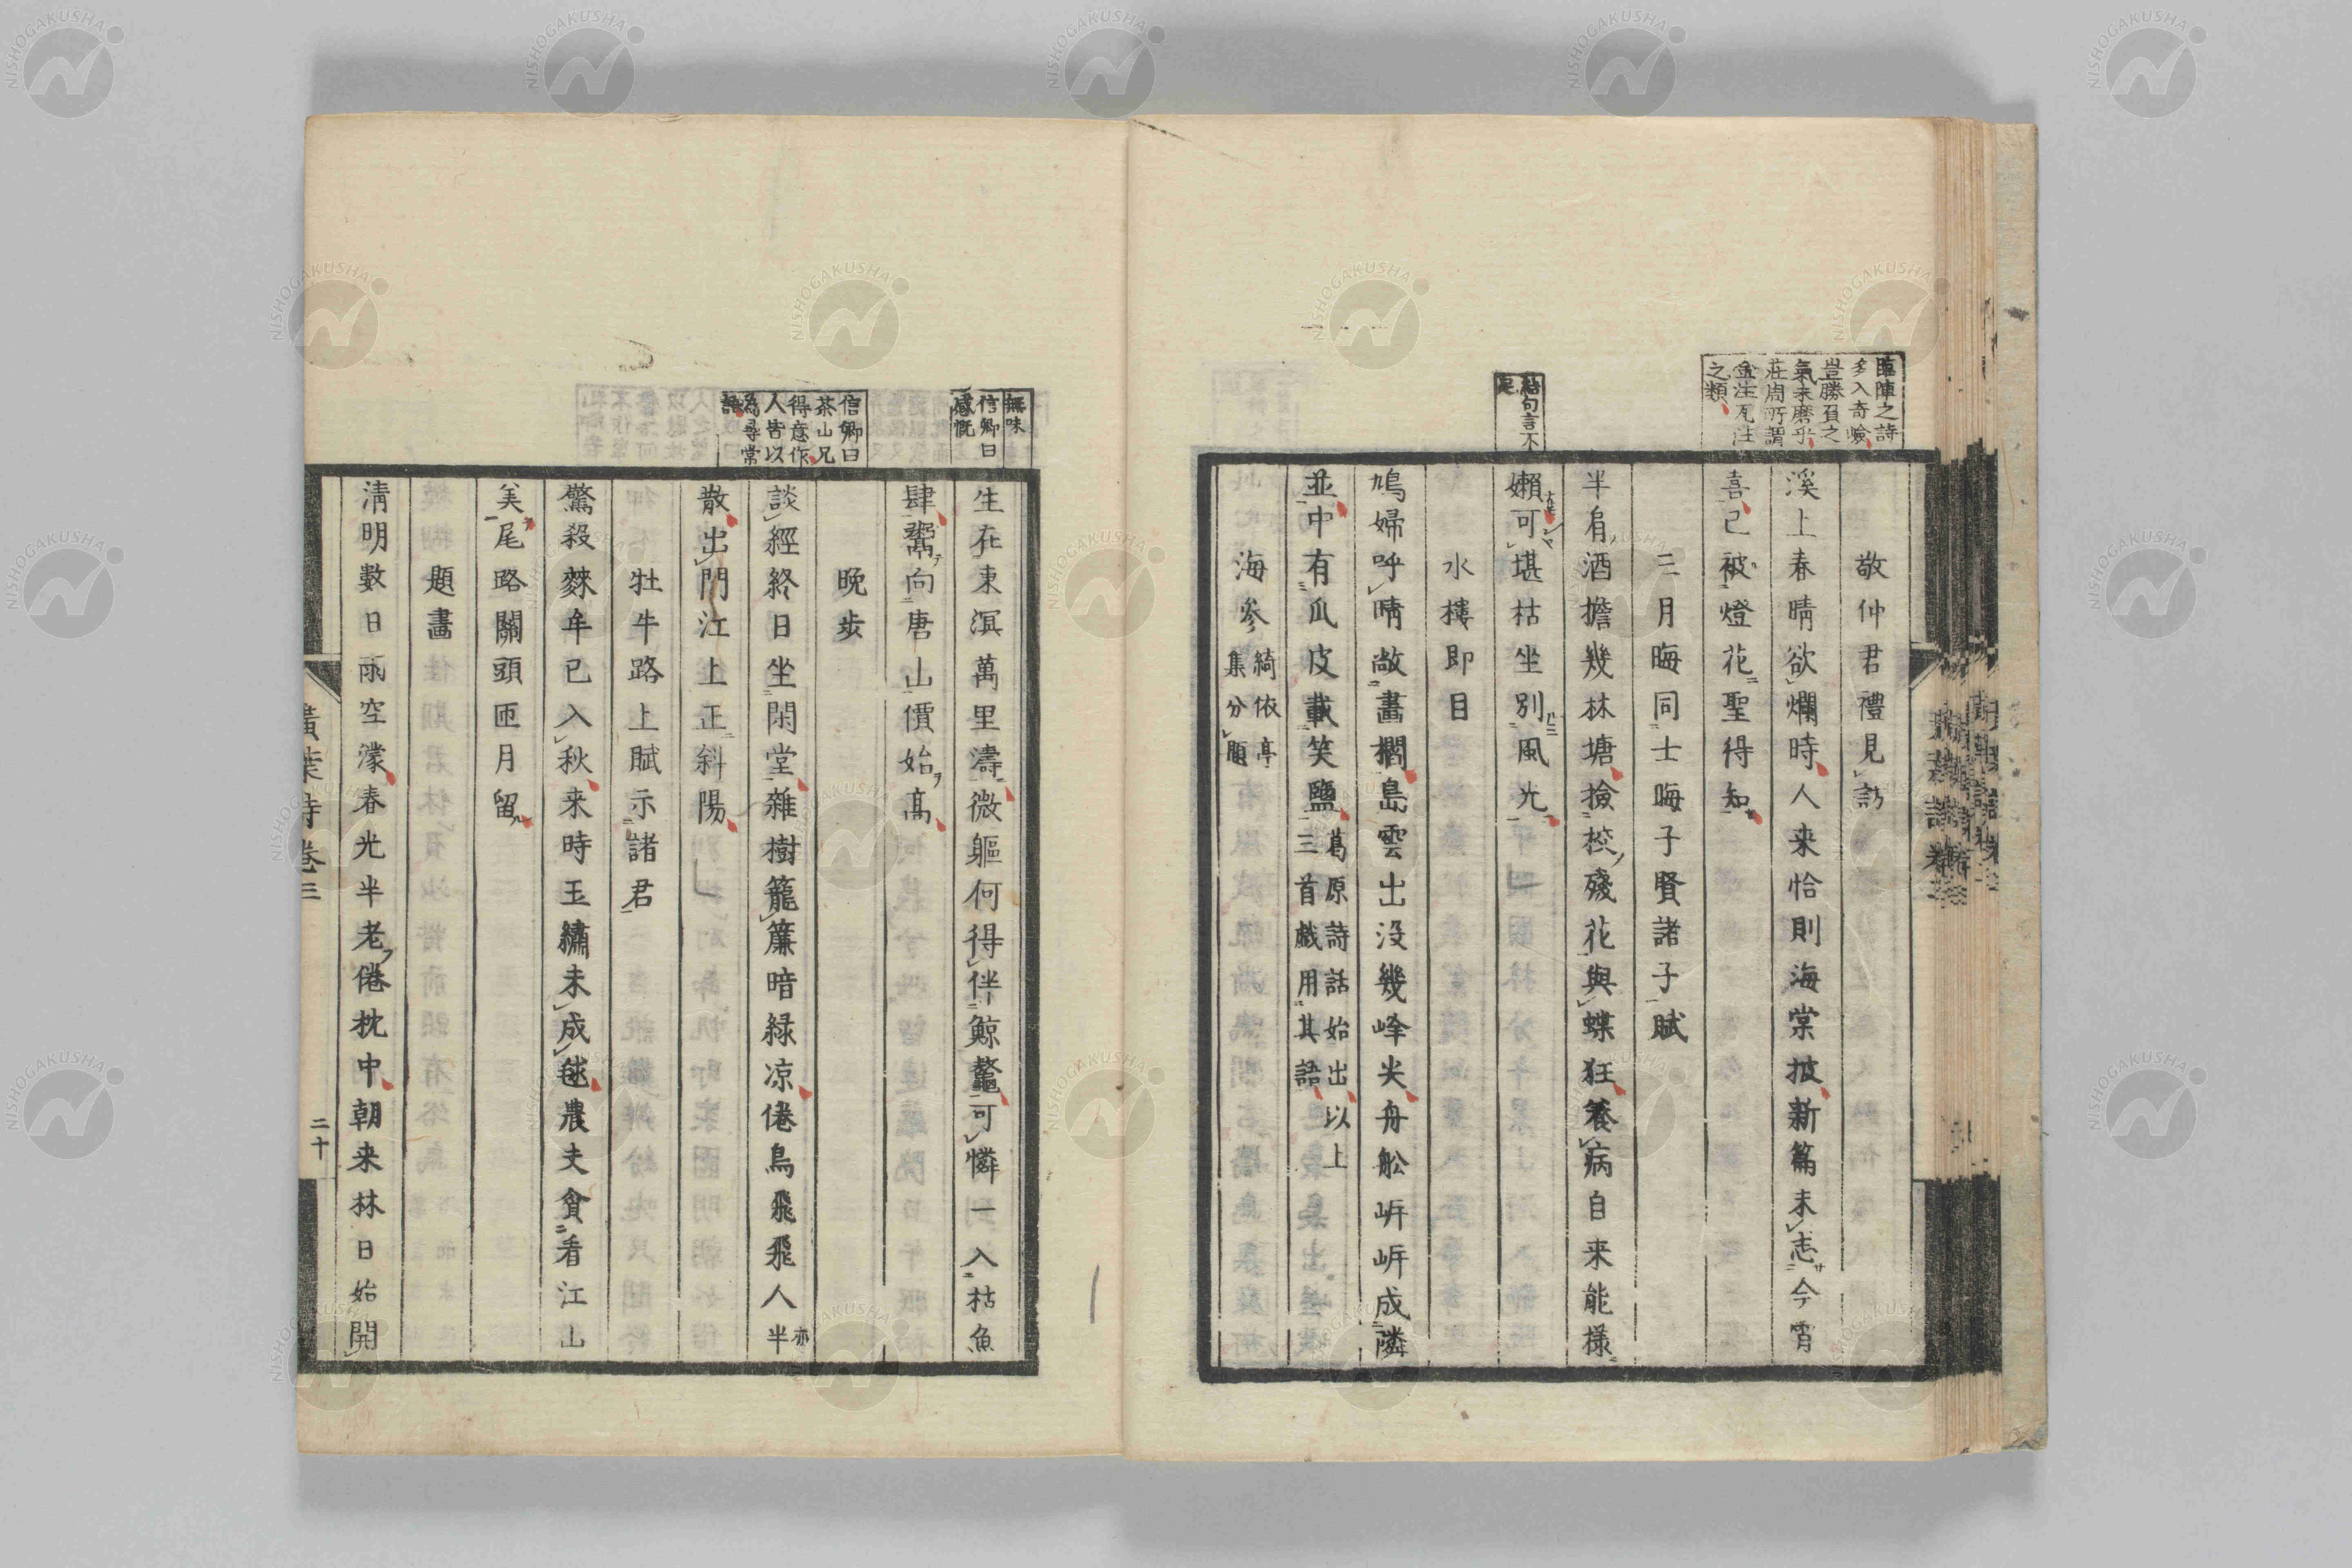 臨陣之詩
多入奇嶮
豈勝負之
氣未磨乎
莊周所謂
金注瓦注
之類
敬仲君禮見訪
溪上春晴欲爛時人来恰則海棠披新篇未志今宵
喜已被燈花聖得知
三月晦同士晦子賢諸子賦
半肩酒擔幾林塘撿校殘花與蝶狂養病自来能様
結句言不
嬾可堪枯坐別風光
水樓即目
鳩婦呼晴敞畫櫊島雲出沒幾峰尖舟舩岍岍成隣
並中有瓜皮載笑鹽葛原詩話始出以上
三首戲用其語
海參綺依亭
集分題
無味
信卿曰
感慨
生在東溟萬里濤微軀何得伴鯨鼇可憐一入枯魚
肆鬻向唐山價始高
晩歩
信卿曰
茶山兄
得意作
人皆以
為尋常
語
談經終日坐閑堂雜樹籠簾暗緑凉倦鳥飛飛人半亦
散出門江上正斜陽
牡牛路上賦示諸君
驚殺麰牟已入秋来時玉繡未成毬農夫貪看江山
美尾路關頭匝月留
題畵
清明數日雨空濛春光半老倦枕中朝来林日始開
黄葉詩卷三
二十
NISHOGAKUSHA